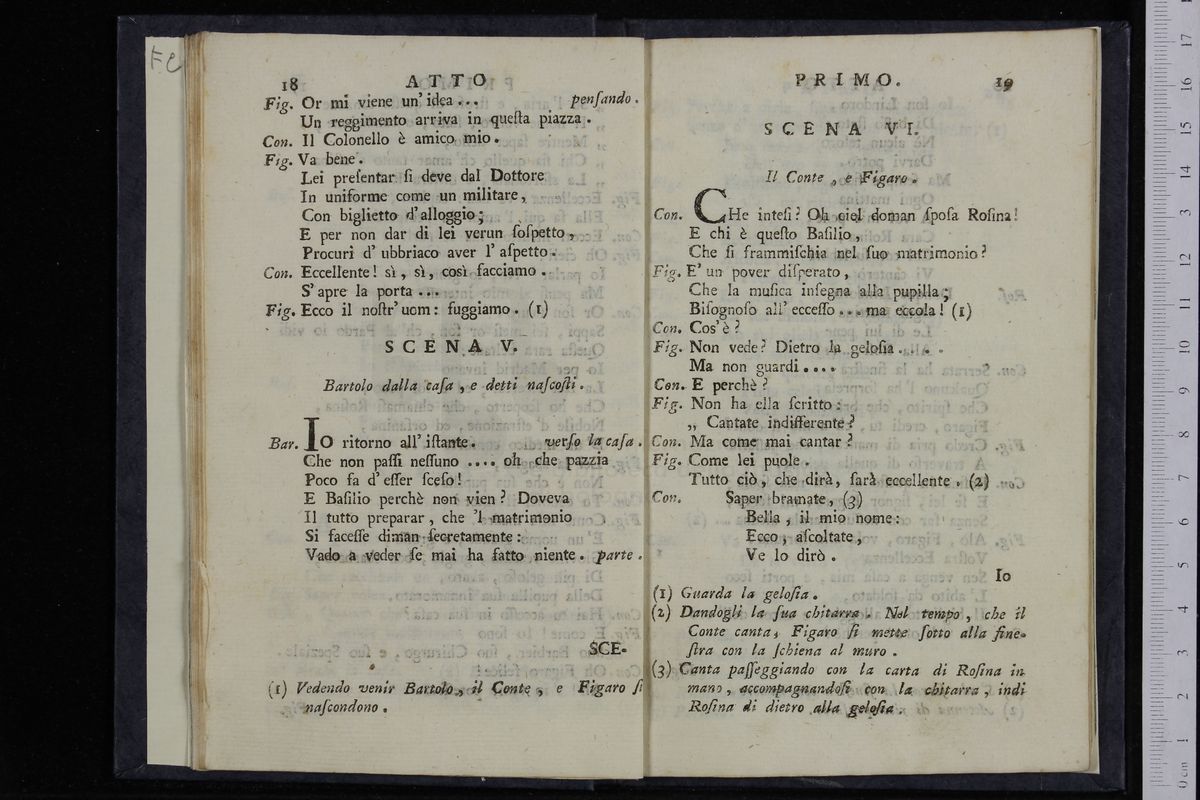 FC
18 ATTO
Fig. Or mi viene un' idea ... penſando.
Un reggimento arriva in queſta piazza.
Con. Il Colonello è amico mio.
Fig. Va bene.
Lei preſentar ſi deve dal Dottore
In uniforme come un militare,
Con biglietto d'alloggio;
E per non dar di lei verun ſoſpetto,
Procuri d' ubbriaco aver l' aſpetto.
Con. Eccellente! sì, sì, così facciamo.
S' apre la porta ...
Fig. Ecco il noſtr' uom: fuggiamo. (1)
SCENA V.
Bartolo dalla caſa, e detti naſcoſti.
Bar. IO ritorno all' iſtante. verſo la caſa.
Che non paſſi neſſuno .... oh che pazzia
Poco fa d' eſſer ſceſo!
E Baſilio perchè non vien? Doveva
Il tutto preparar, che 'l matrimonio
Si faceſſe diman ſecretamente:
Vado a veder ſe mai ha fatto niente. parte.
SCE-
(1) Vedendo venir Bartolo, il Conte, e Figaro ſi
naſcondono.
PRIMO. 19
SCENA VI.
Il Conte, e Figaro.
Con. CHe inteſi? Oh ciel doman ſpoſa Roſina!
E chi è queſto Baſilio,
Che ſi frammiſchia nel ſuo matrimonio?
Fig. E' un pover diſperato,
Che la muſica inſegna alla pupilla;
Biſognoſo all' ecceſſo ... ma eccola! (1)
Con. Cos' è?
Fig. Non vede? Dietro la geloſia ....
Ma non guardi ....
Con. E perchè?
Fig. Non ha ella ſcritto:
„ Cantate indifferente?
Con. Ma come mai cantar?
Fig. Come lei puole.
Tutto ciò, che dirà, ſarà eccellente. (2)
Con. Saper bramate, (3)
Bella, il mio nome:
Ecco, aſcoltate,
Ve lo dirò.
Io
(1) Guarda la geloſia.
(2) Dandogli la ſua chitarra. Nel tempo, che il
Conte canta, Figaro ſi mette ſotto alla fine-
ſtra con la ſchiena al muro.
(3) Canta paſſeggiando con la carta di Roſina in
mano, accompagnandoſi con la chitarra, indi
Roſina di dietro alla geloſia.
0 cm 1 2 3 4 5 6 7 8 9 10 11 12 13 14 15 16 17